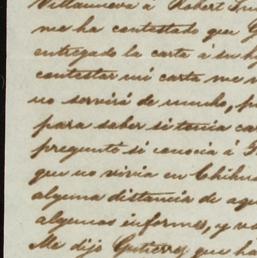 Villanueva á Robert
me ha contestado que
entregado la carta á su h
contestar mi carta me
no servirá de mucho, p
para saber si tenia car
preguntó si conocia á
que no vivia en Chihua
alguna distancia de aqu
algunos informes, y
Me dijo Gutierrez que ha